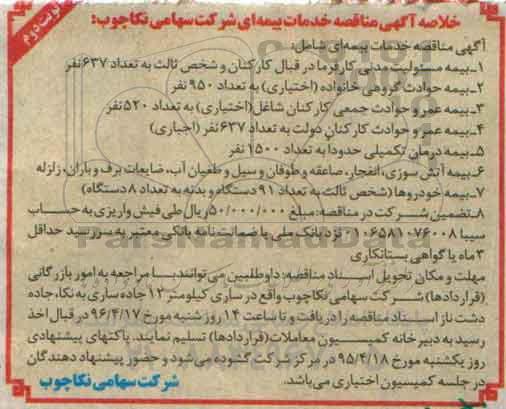 نوبت دوم
خلاصه آگهی مناقصه خدمات بیمه ای شرکت سهامی نکاچوب:
آگهی مناقصه خدمات بیمه ای شامل:
۱ـ بیمه مسئولیت مدنی کارفرما در قبال کارکنان و شخص ثالث به تعداد ۶۳۷ نفر
۲ـ بیمه حوادث گروهی خانواده (اختیاری) به تعداد ۹۵۰ نفر
۳ـ بیمه عمر و حوادث جمعی کارکنان شاغل (اختیاری) به تعداد ۵۲۰ نفر
۴ـ بیمه عمر و حوادث کارکنان دولت به تعداد ۶۳۷ نفر (اجباری)
۵ـ بیمه درمان تکمیلی حدوداً به تعداد ۱۵۰۰ نفر
۶ـ بیمه آتش سوزی، انفجار، صاعقه و طوفان و سیل و طغیان آب، ضایعات برف و باران، زلزله
۷ـ بیمه خودروها (شخص ثالث به تعداد ۹۱ دستگاه و بدنه به تعداد ۸ دستگاه)
۸ـ تضمین شرکت در مناقصه: مبلغ ۵۰/۰۰۰/۰۰۰ ریال طی فیش واریزی به حساب
سیبا ۰۱۰۶۵۸۱۰۷۶۰۰۸ نزد بانک ملی یا ضمانت نامه بانکی معتبر به سررسید حداقل
۳ ماه یا گواهی بستانکاری
مهلت و مکان تحویل اسناد مناقصه: داوطلبین می توانند با مراجعه به امور بازرگانی
(قراردادها) شرکت سهامی نکاچوب واقع در ساری کیلومتر ۱۲ جاده ساری به نکا، جاده
دشت ناز اسناد مناقصه را دریافت و تا ساعت ۱۴ روز شنبه مورخ ۹۶/۴/۱۷ در قبال اخذ
رسید به دبیرخانه کمیسیون معاملات (قراردادها) تسلیم نمایند. پاکتهای پیشنهادی
روز یکشنبه مورخ ۹۵/۴/۱۸ در مرکز شرکت گشوده می شود و حضور پیشنهاد دهندگان
در جلسه کمیسیون اختیاری می باشد.
شرکت سهامی نکاچوب
ParsNamadData